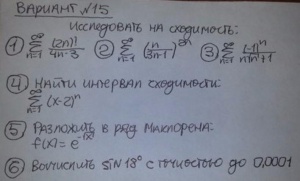 ВАРИАНТ №15
Исследовать на сходимость:
① ∞∑n=1 (2n)!/4n-3 ② ∞∑n=1 (n/3n-1)^2n ③ ∞∑n=1 (-1)^n/n√n+1
④ Найти интервал сходимости:
∞∑n=1 (x-2)^n
⑤ Разложить в ряд Маклорена:
f(x)=e^-
⑥ Вычислить sin 18° с точностью до 0,0001